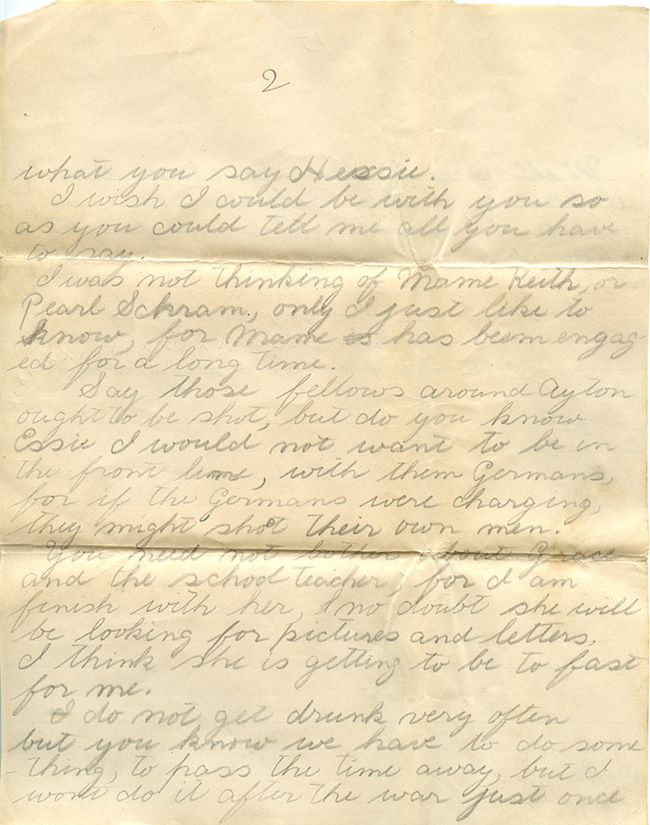 2
what you say Hessie.
I wish I could be with you so
as you could tell me all you have
to say.
I was not thinking of Mame Keith, or
Pearl Schram, only I just like to
know, for Mame is has beem engag-
ed for a long time.
Say those fellows around Ayton
ought to be shot, but do you know
Essie I would not want to be in
the front line, with them Germans,
for if the Germans were charging,
they might shot their own men.
You need not bother about Grace
and the school teacher, for I am
finish with her, no doubt she will
be looking for pictures and letters,
I think she is getting to be to fast
for me.
I do not get drunk very often
but you know we have to do some
-thing, to pass the time away, but I
wont do it after the war just once